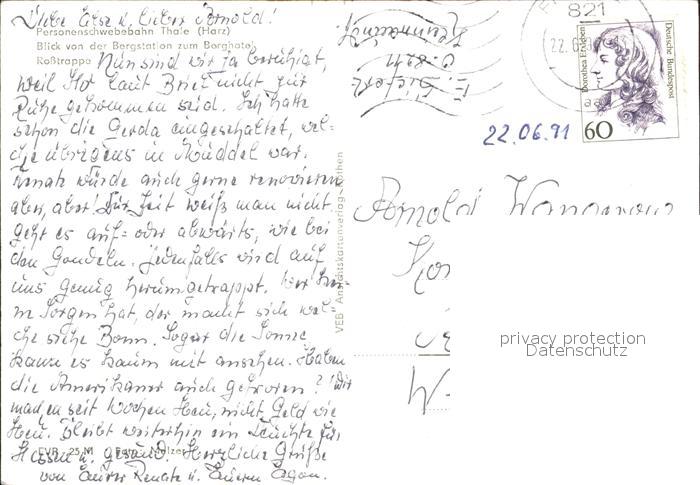 Liebe Else u. lieber Arnold!
Personenschwebebahn Thale (Harz)
Blick von der Bergstation zum Berghotel
Roßtrappe
Nun sind wir ja beruhigt,
weil Ihr laut Brief nicht zur
Ruhe gekommen seid. Ich hatte
schon die Gerda eingeschaltet, wel-
che übrigens in Müddel war.
Renate würde auch gerne renovieren
aber, aber! Zur Zeit weiß man nicht,
geht es auf= oder abwärts, wie bei
den Gondeln. Jedenfalls wird auf
uns genug herumgetrappt. Wer kei-
ne Sorgen hat, der macht sich wel-
che siehe Bonn. Sogar die Sonne
kann es kaum mit ansehen. Haben
die Amerikaner auch gefroren? Wir
machen seit Wochen Heu, nicht Geld wie
Heu. Bleibt weiterhin ein Leuchte für
Hessen u. gesund. Herzliche Grüße
von Eurer Renate u. Euerm Egon.
EVP -,25 M
VEB Ansichtskartenverlag Köthen
E.
O-8211
821
22.6.
Dorothea Erxleben
Deutsche Bundespost
60
22.06.91
Arnold
W-
privacy protection
Datenschutz